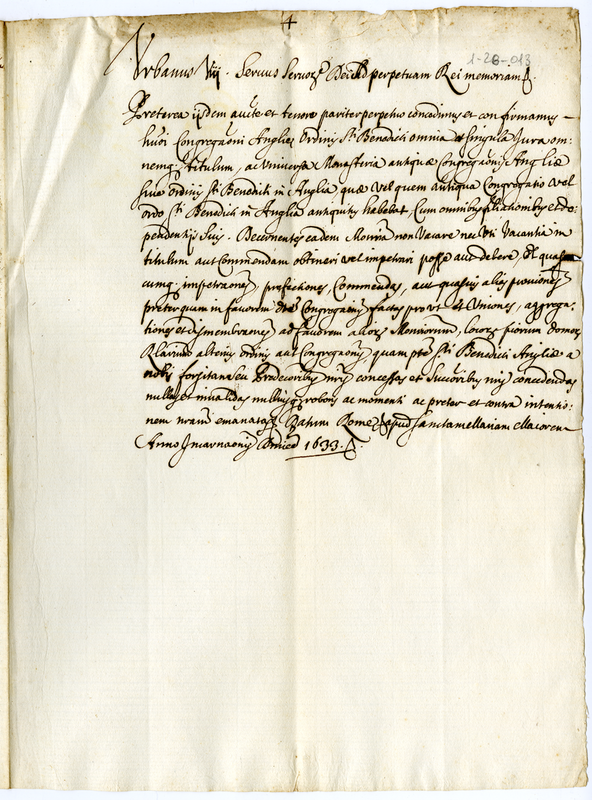 4
1-26-013
Urbanus Viij. Servus Servorʒ Dei Ad perpetuam Rei memoriam
Preterea ijsdem aucte et tenore pariter perpetuo concedimus et confirmamus
huõi Congregaõni Angliæ Ordinis Sti Benedicti omnia et singula Jura om-
nemqʒ titulum, ac Universa Monasteria antiquæ Congregaõnis Angliæ
huiꝰ ordinis Sti Benedicti in Anglia quæ vel quem antiqua Congregatio vel
ordo Sti Benedicti in Anglia antiquitꝰ habebat, Cum omnibus filiationibus et de-
pendentijs suis. Decernentes eadem Monria non Vacare nec uti Vacantia in
titulum aut Commendam obtineri vel impetrari posse aut debere, Et quas-
cumqʒ impetraões, prefectiones, Commendas, aut quasvis alias provisiones
preterquam in favorem Congregaõnis factas pro ut et Uniones, aggrega-
tiones et dismembraões ad favorem alioʒ Monriorum, locorʒ piorum domorʒ
alterius ordinis aut Congregaõnis quam pte Sti Benedicti Angliæ a
nobis forsitan seu Predecoribus nris concessas et Succoribus nris concedendas
nullas et invalidas nulliusqʒ roboris ac momenti ac preter et contra intentio-
nem nram emanatas Datum Romæ apud Sanctam Mariam Maiorem
Anno Incarnaõnis Dnicæ 1633.